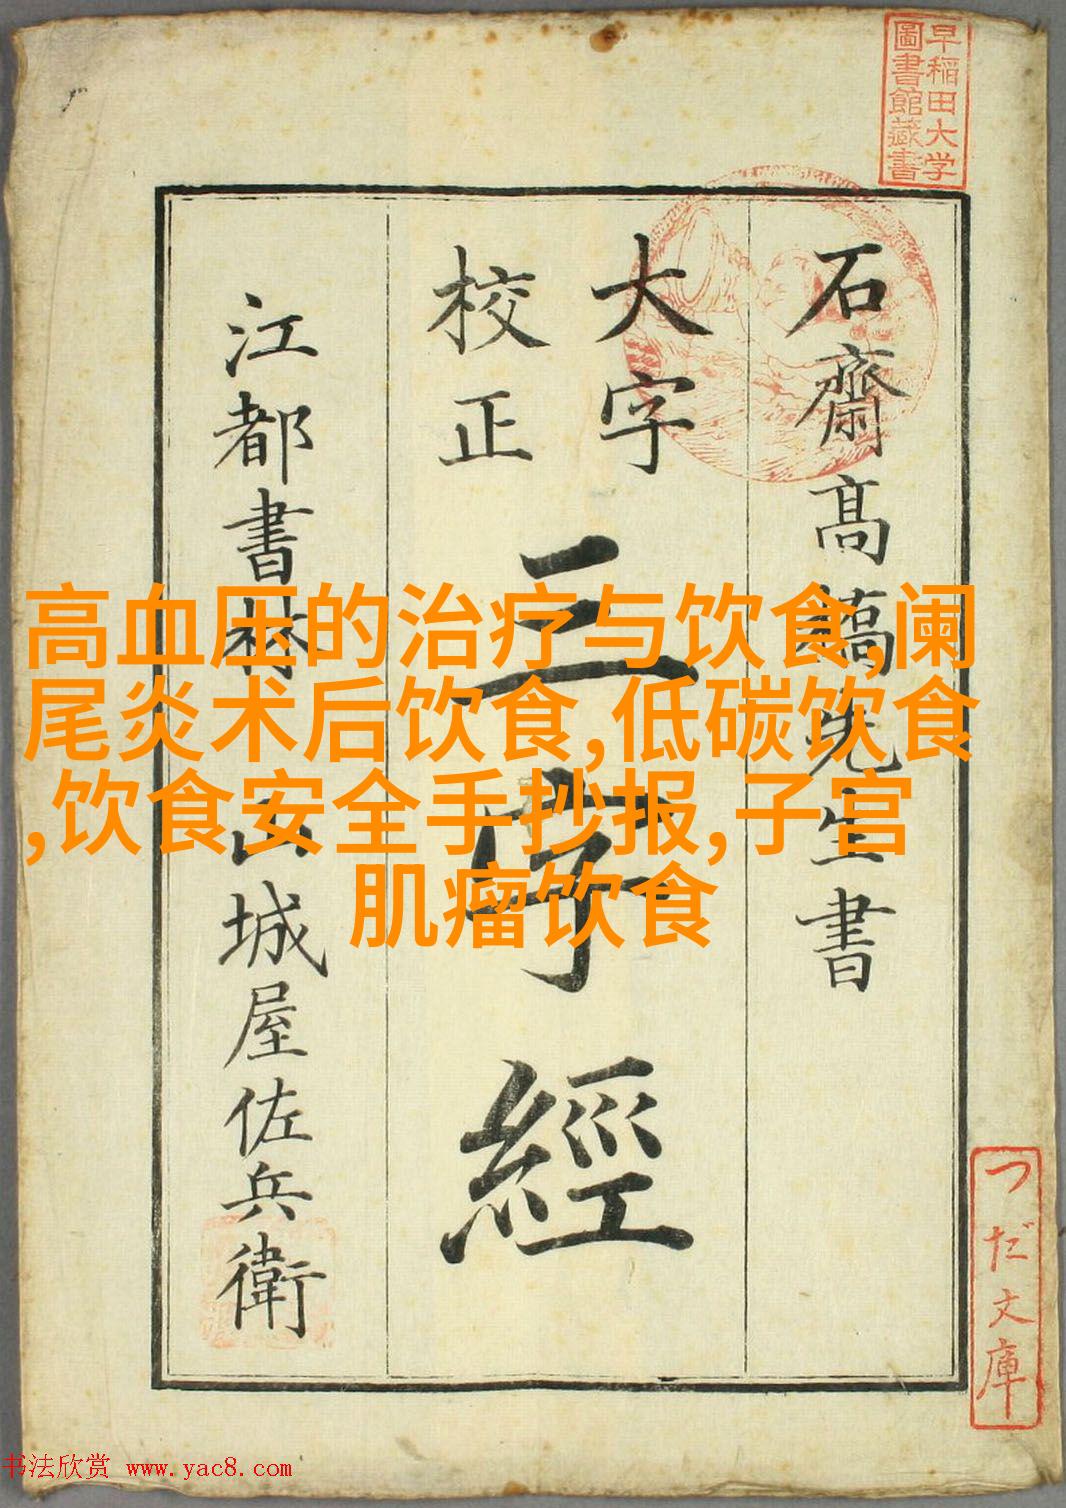 早稲田大学
圖書館藏書
石齋高縞先生書
大字
校正
三字經
江都書林
山城屋佐兵衛
高血压的治疗与饮食,阑
尾炎术后饮食,低碳饮食
,饮食安全手抄报,子宫
肌瘤饮食
つだ文庫
书法欣赏 www.yac8.com